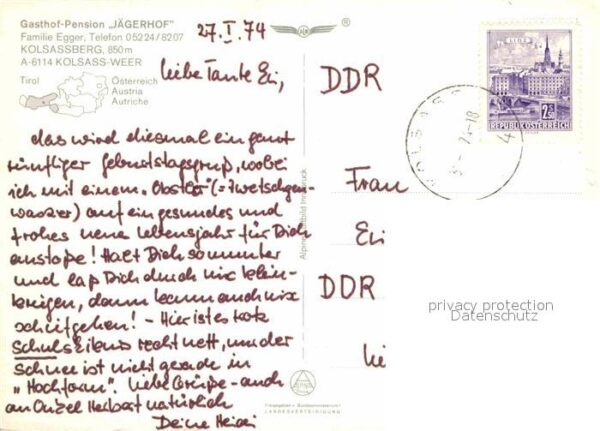 Gasthof-Pension „JÄGERHOF"
Familie Egger, Telefon 05224/8207
KOLSASSBERG, 850 m
A-6114 KOLSASS-WEER
Tirol
Österreich
Austria
Autriche
27.I.74
Liebe Tante Evi,
das wird diesmal ein ganz
zünftiger Geburtstagsgruß, wobei
ich mit einem „Obstler" (= Zwetschgen-
wasser) auf ein gesundes und
frohes neue Lebensjahr für Dich
anstoße! Halt Dich so munter
und laß Dich durch nix klein-
kriegen, dann kann auch nix
schiefgehen! - Hier ist es trotz
Schulskileins recht nett, nur der
Schnee ist nicht gerade in
„Hochform". Liebe Grüße - auch
an Onkel Herbert natürlich
Deine Heidi
Alpine Luftbild Innsbruck
Freigegeben v. Bundesministerium f.
LANDESVERTEIDIGUNG
DDR
Frau
Evi
DDR
LINZ
2.50
REPUBLIK ÖSTERREICH
KOLSASS
74-18
privacy protection
Datenschutz